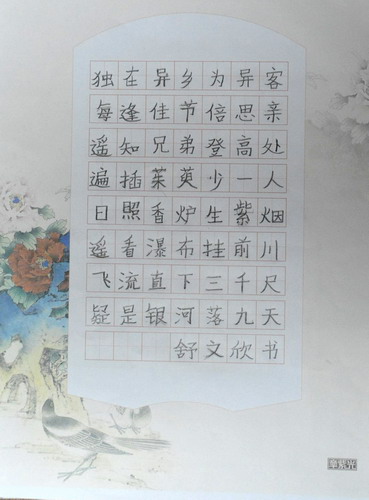 独在异乡为异客
每逢佳节倍思亲
遥知兄弟登高处
遍插茱萸少一人
日照香炉生紫烟
遥看瀑布挂前川
飞流直下三千尺
疑是银河落九天
舒文欣书